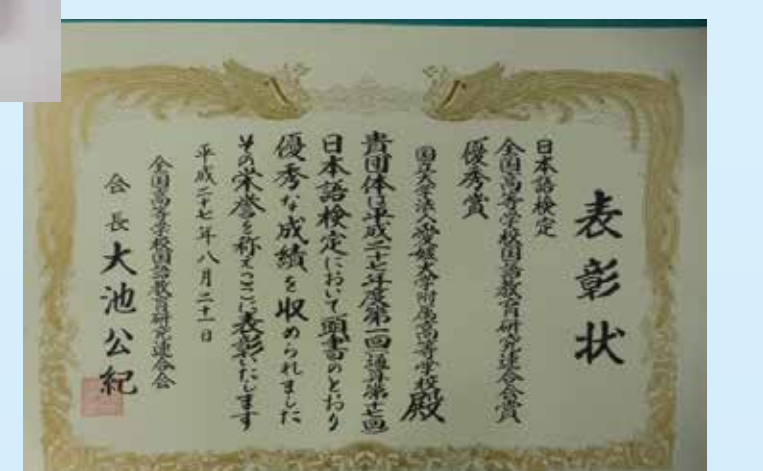 表彰状
日本語検定
全国高等学校国語教育研究連合会賞
優秀賞
国立大学法人愛媛大学附属高等学校殿
貴団体は平成二十七年度第一回通算第十七回
日本語検定において頭書のとおり
優秀な成績を収められました
その栄誉を称えここに表彰いたします
平成二十七年八月二十一日
全国高等学校国語教育研究連合会
会長 大池公紀